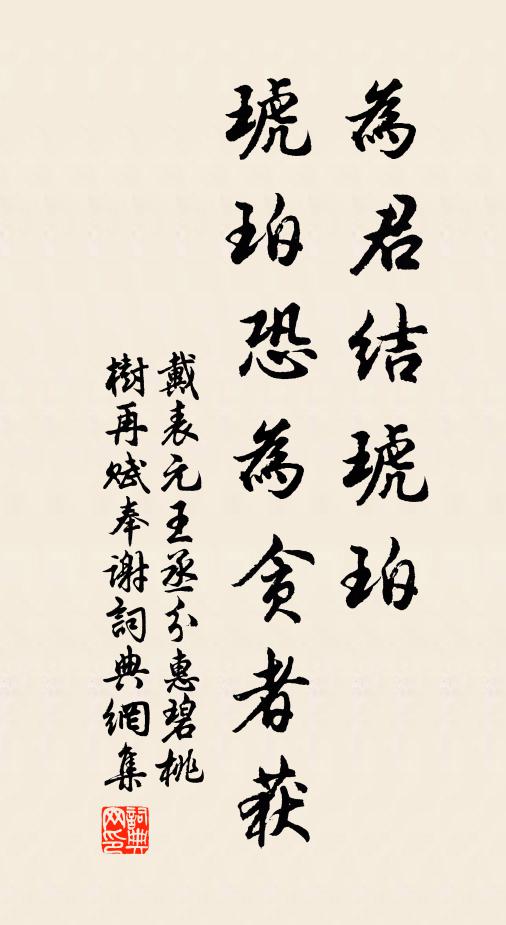 為君結琥珀
琥珀恐為貪者获
戴表元王丞分惠碧桃
樹再賦奉谢詞典網集
詞典
网印